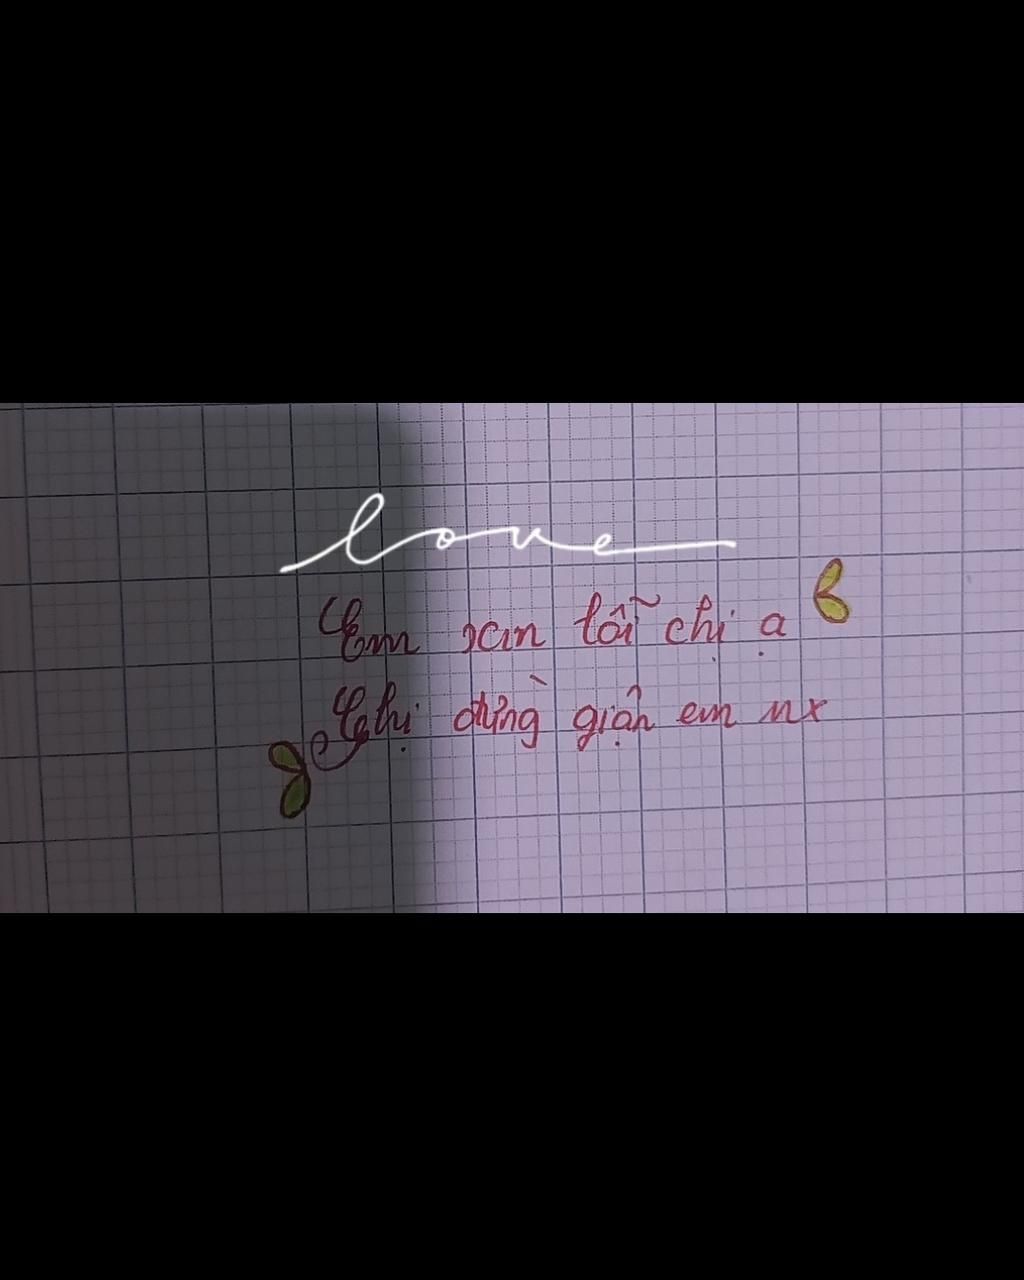 love
Em xin lỗi chị ạ
Chị đừng giận em nx